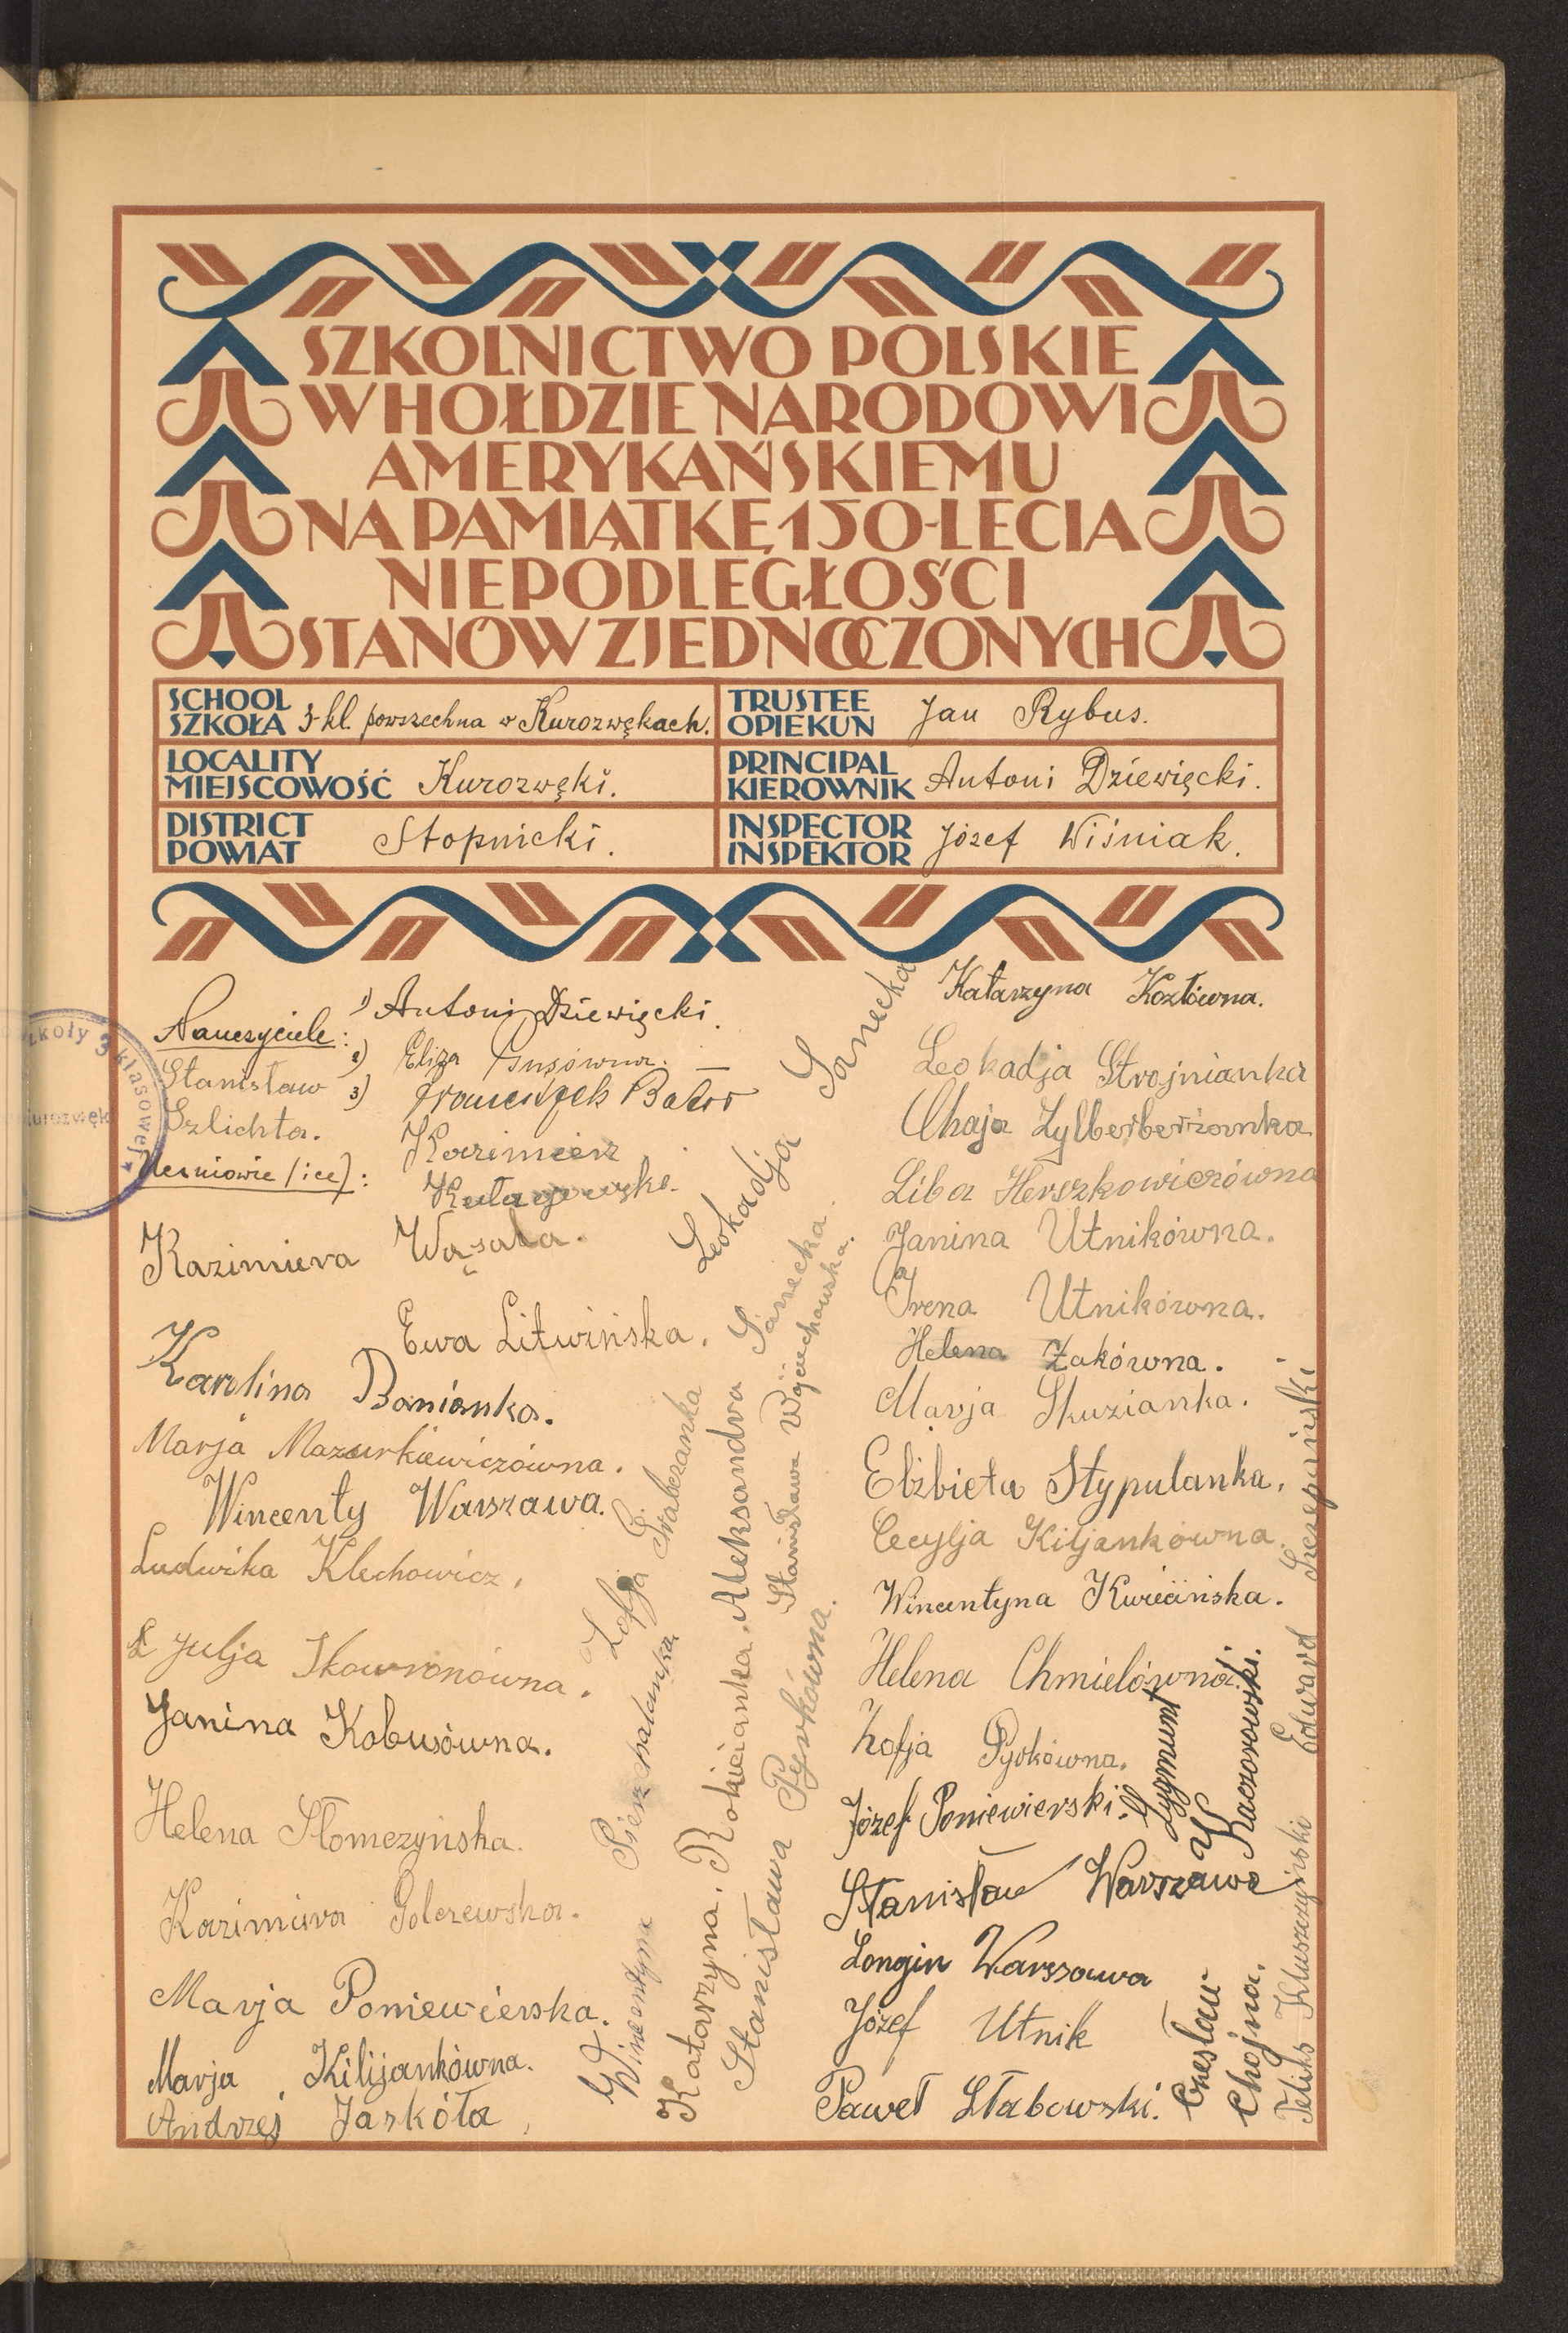 SZKOLNICTWO POLSKIE
W HOŁDZIE NARODOWI
AMERYKAŃSKIEMU
NA PAMIĄTKĘ 150-LECIA
NIEPODLEGŁOŚCI
STANÓW ZJEDNOCZONYCH
SCHOOL
SZKOŁA 3-kl. powszechna w Kurozwękach.
TRUSTEE
OPIEKUN Jan Rybus.
LOCALITY
MIEJSCOWOŚĆ Kurozwęki.
PRINCIPAL
KIEROWNIK Antoni Dziewięcki.
DISTRICT
POWIAT Stopnicki.
INSPECTOR
INSPEKTOR Józef Wiśniak.
Nauczyciele:
1) Antoni Dziewięcki.
2) Eliza
3) Franciszek Bator
Stanisław
Szlichta.
Uczniowie /ice/:
Kazimierz
Kazimiera Wąsala.
Ewa Litwińska.
Karolina Banianka.
Marja Mazurkiewiczówna.
Wincenty Warszawa.
Ludwika Klechowicz.
Julja Skowronówna.
Janina Kobusówna.
Helena Słomczyńska.
Kazimiera Golczewska.
Marja Poniewierska.
Marja Kilijankówna.
Andrzej Jaskóła
Leokadja Sanecka
Zofja Grabczanka
Wincentyna
Katarzyna Rokicianka.
Aleksandra Sanecka.
Stanisława Wojciechowska.
Stanisława Pyrkówna.
Katarzyna Kozłówna.
Leokadja Strojnianka
Chaja Zylberberżanka
Liba Herszkowiczówna
Janina Utnikówna.
Irena Utnikówna.
Helena Żakówna.
Marja Skuzianka.
Elżbieta Stypulanka.
Cecylja Kiljankówna.
Wincentyna Kwiecińska.
Helena Chmielówna.
Zofja Pyrkówna.
Józef Poniewierski.
Stanisław Warszawa
Longin Warszawa
Józef Utnik
Paweł Słabowski.
Zygmunt
Kaczorowski.
Czesław
Chojna.
Edward Szczepański
Feliks Kluszczyński
szkoły 3 klasowej
Kurozwęk